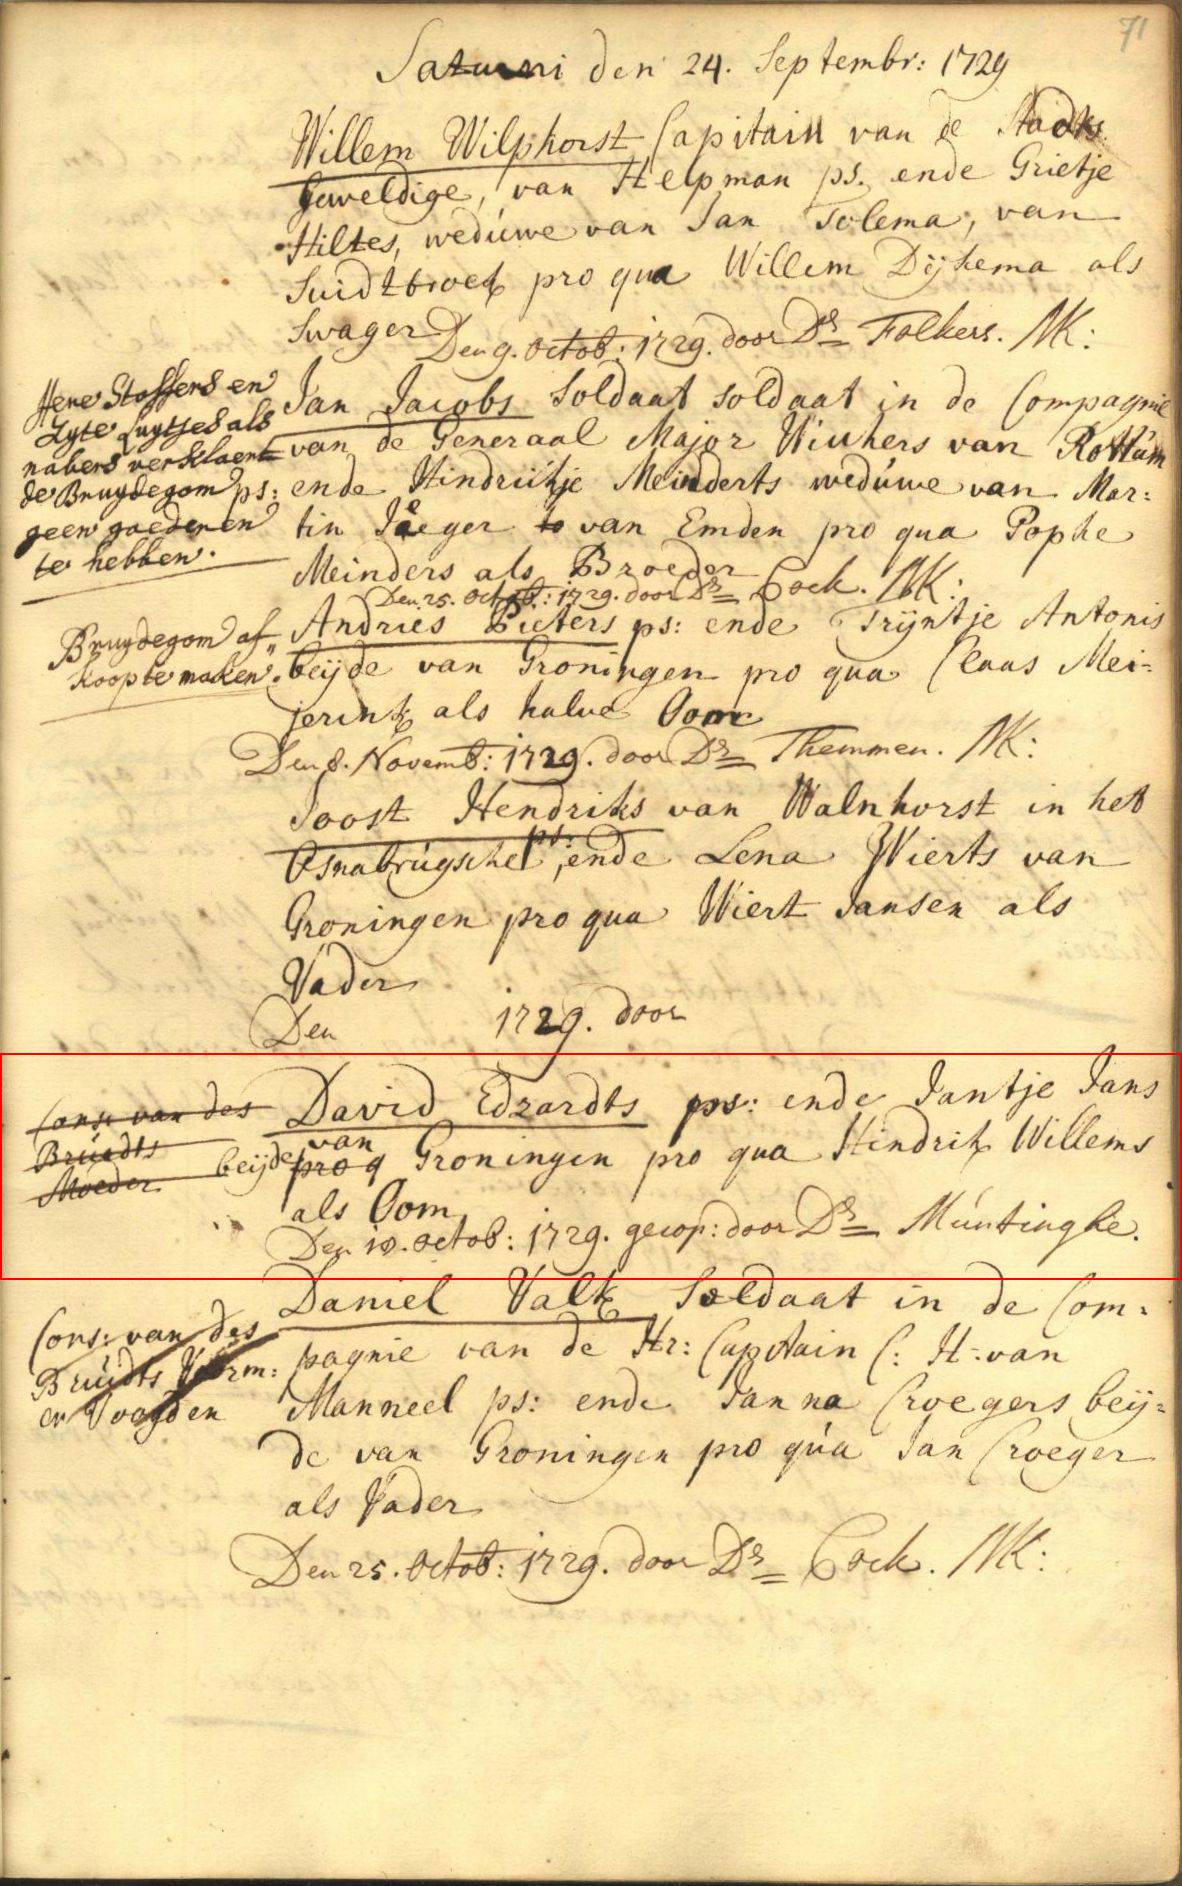 71
Saturni den 24. Septembr: 1729
Willem Wilphorst Capitain van de Stadts
Geweldige, van Helpman ps. ende Grietje
Hiltes, weduwe van Jan Tolema, van
Suidtbroek pro qua Willem Dijkema als
Swager
Den 9. Octob: 1729. door Ds Folkers. NK:
Jan Jacobs Soldaat soldaat in de Compagnie
van de Generaal Major Wichers van Rottum
ende Hindrickje Meinderts weduwe van Mar:
tin Jaeger to van Emden pro qua Pophe
Meinders als Broeder
Den 25. Octob: 1729. door Ds Cock. NK:
Here Stoffers en
Zyte Luytjes als
nabers verklaert
de Bruydegom ps:
geen goederen
te hebben.
Andries Pieters ps: ende Trijntje Antonis
beijde van Groningen pro qua Claas Mei=
jerink als halve Oom
Den 8. Novemb: 1729. door Ds Themmen. NK:
Bruydegom af„
koop te maken.
Joost Hendriks van Walnhorst in het
Osnabrugsche ps:, ende Lena Wierts van
Groningen pro qua Wiert Jansen als
Vader
Den 1729. door
David Edzardts ps: ende Jantje Jans
beijde van pro q Groningen pro qua Hindrik Willems
als Oom
Den 18. Octob: 1729. gecop: door Ds Muntinghe.
Cons: van des
Bruidts
Moeder
Daniel Valk Soldaat in de Com:
pagnie van de Hr: Capitain C: H: van
Manneel ps: ende Janna Croegers beij=
de van Groningen pro qua Jan Croeger
als Vader
Den 25. Octob: 1729. door Ds Cock. NK:
Cons: van des
Bruidts Voorm:
en Voogden